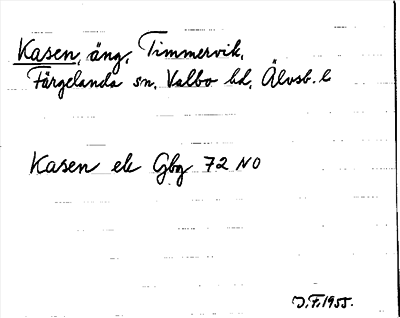 Kasen, äng, Timmervik,
Färgelanda sn, Valbo hd, Älvsb. l
Kasen ek Gbg 72 NO
J.F. 1955.